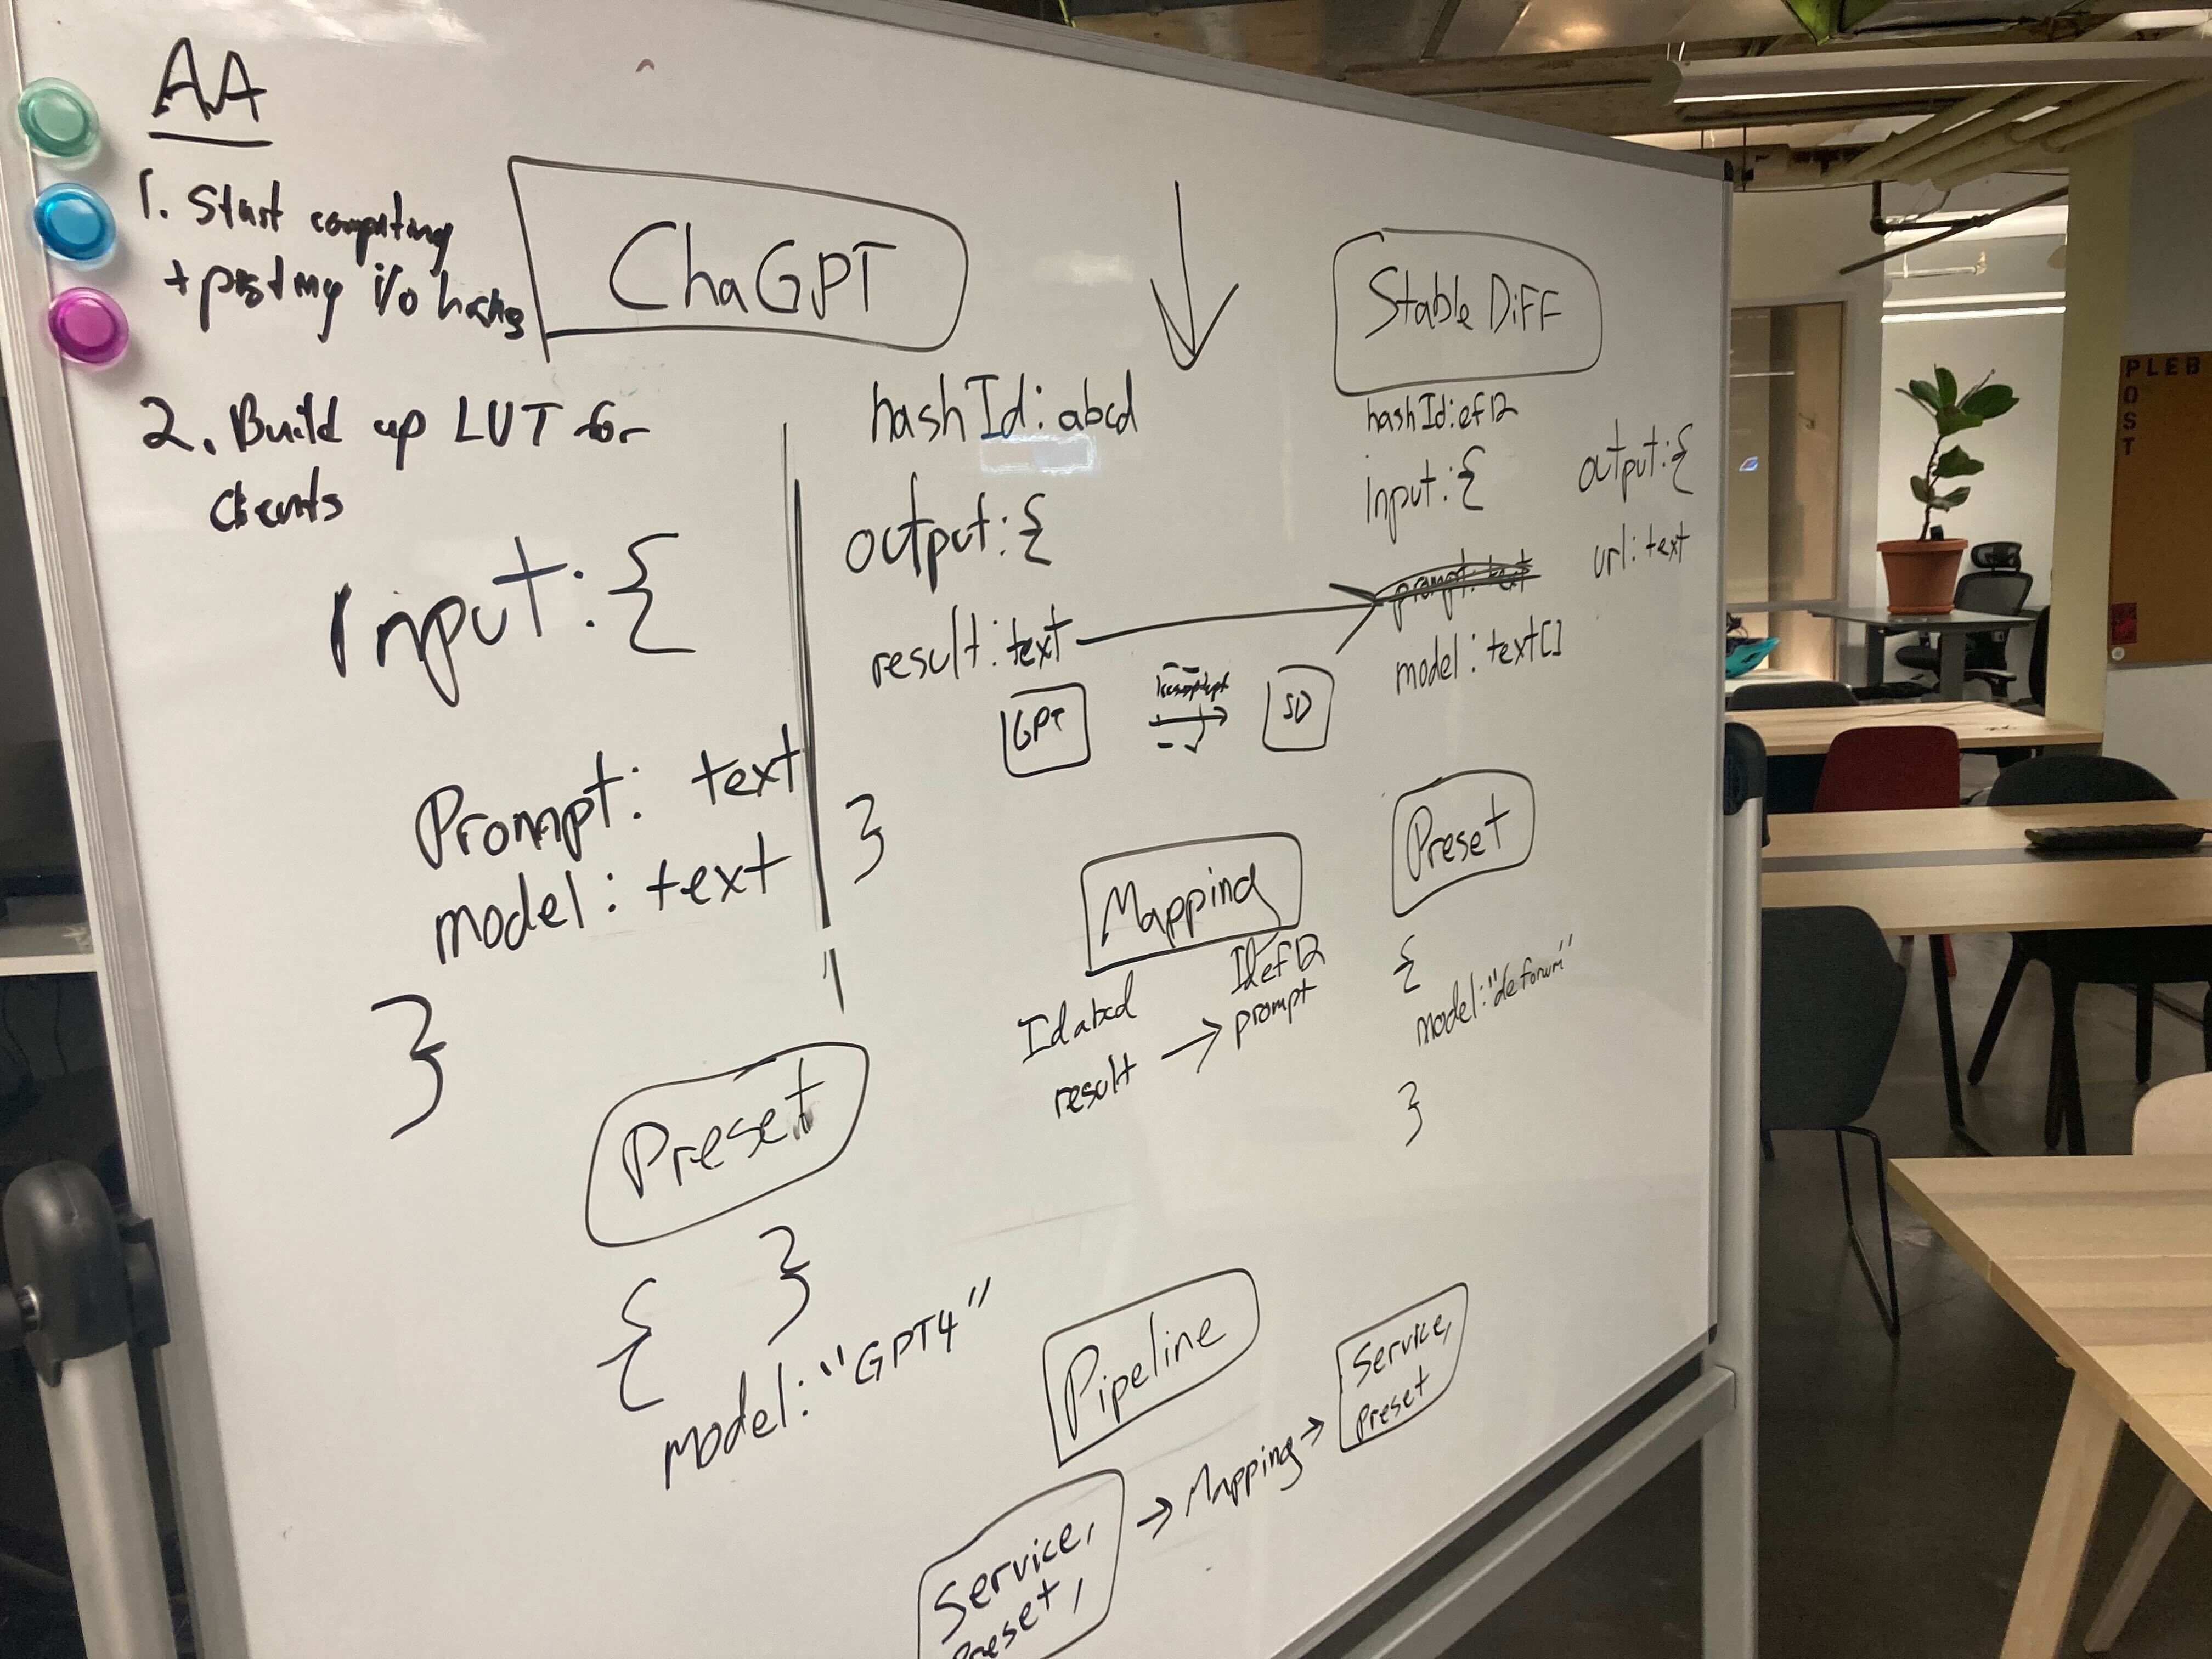 AA
1. Start computing
+ posting i/o hashes
2. Build up LUT for
clients
ChaGPT
Input:{
Prompt: text
model: text
}
hashId: abcd
output:{
result: text
}
GPT
SD
Stable DiFF
hashId: ef12
input:{
prompt: text
model: text[]
output:{
url: text
Mapping
Id abcd
Id ef12
result → prompt
Preset
{
model: "deforum"
}
Preset
{ }
model: "GPT4"
Pipeline
Service,
Preset,
→ Mapping →
Service,
Preset
PLEB
POST